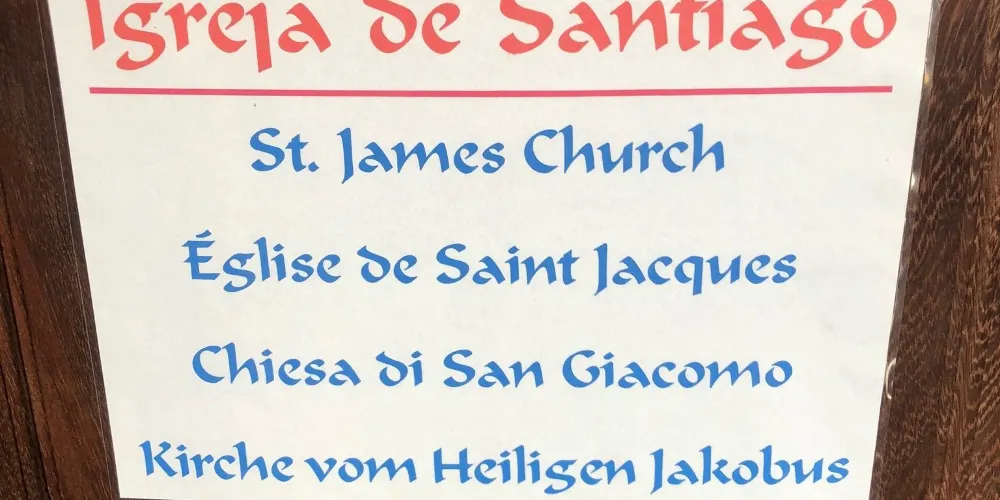 Igreja de Santiago
St. James Church
Église de Saint Jacques
Chiesa di San Giacomo
Kirche vom Heiligen Jakobus